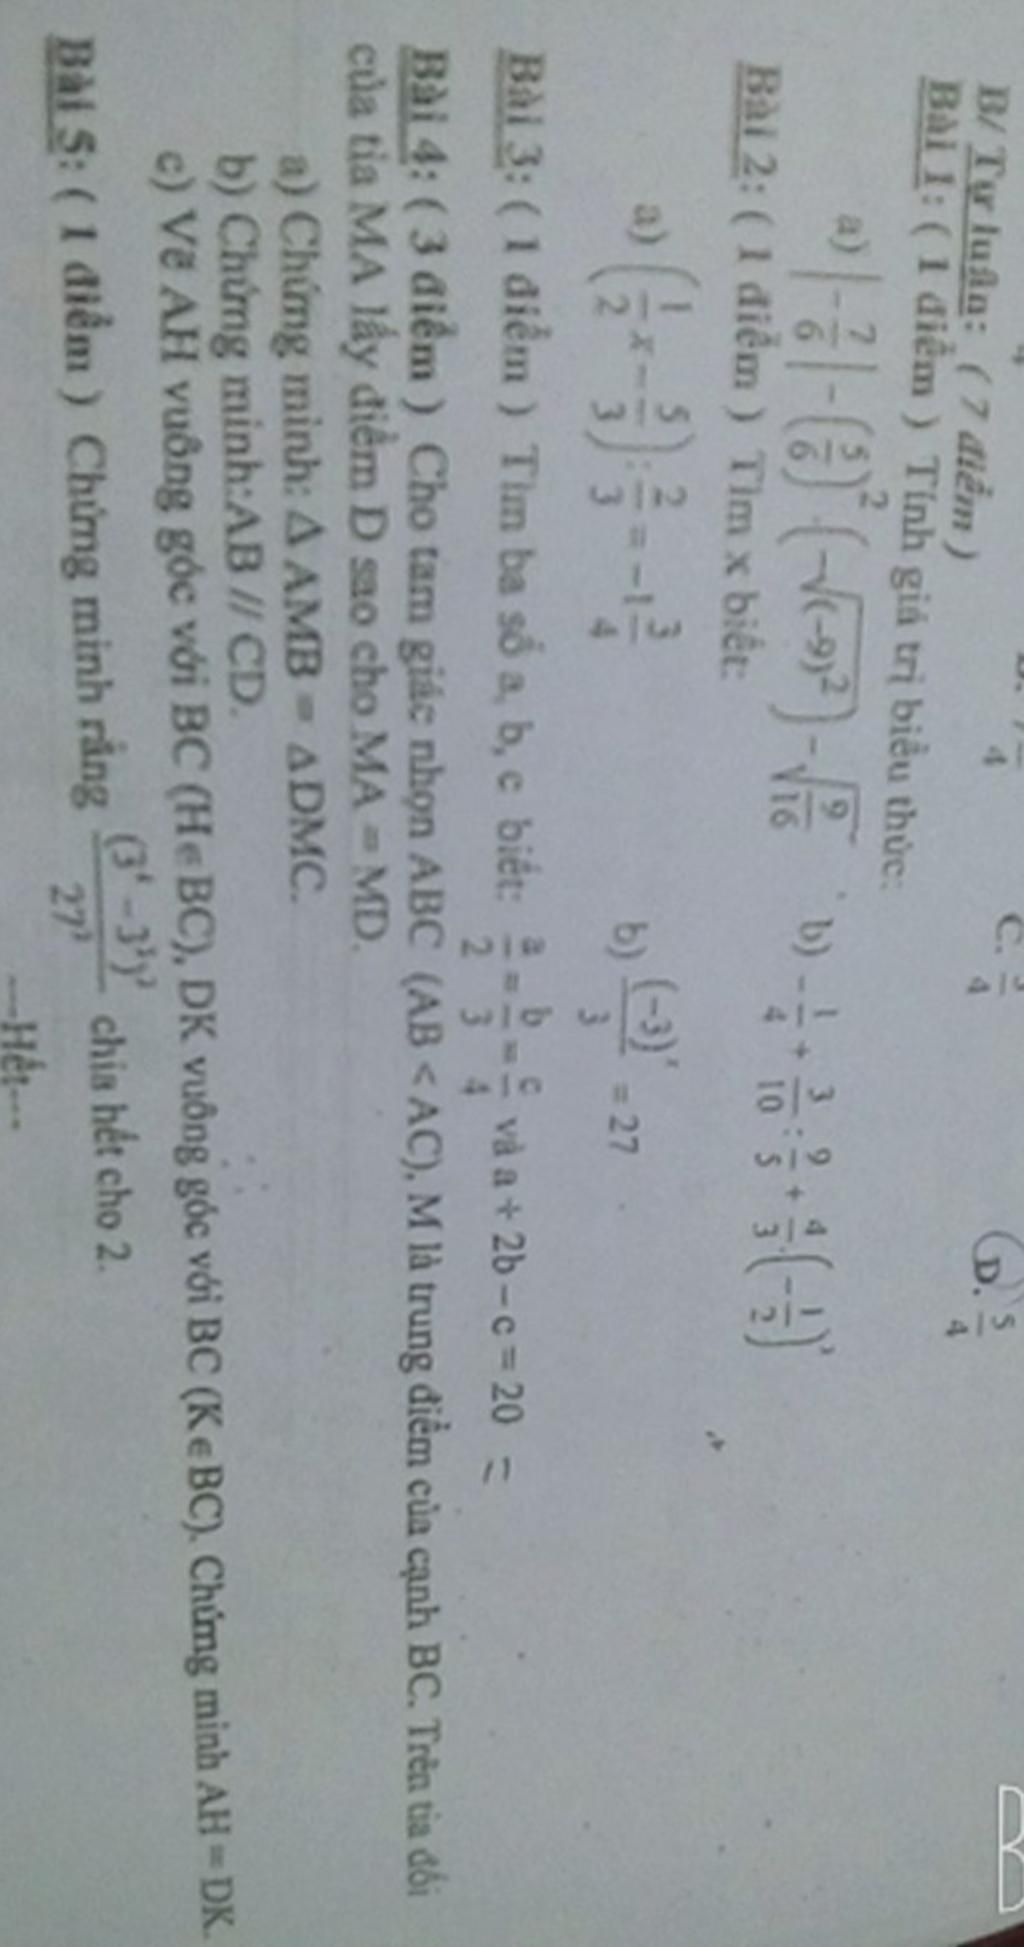 4
4
C. 3/4
D. 5/4
B
B/ Tự luận: ( 7 điểm )
Bài 1: ( 1 điểm ) Tính giá trị biểu thức:
a) |-7/6| - (5/6)² . (-√(-9)²) - √(9/16) b) -1/4 + 3/10 : 9/5 + 4/3 . (-1/2)³
Bài 2: ( 1 điểm ) Tìm x biết:
a) (1/2 x - 5/3) : 2/3 = -1 3/4 b) (-3)ˣ/3 = 27
Bài 3: ( 1 điểm ) Tìm ba số a, b, c biết: a/2 = b/3 = c/4 và a + 2b – c = 20 =
Bài 4: ( 3 điểm ) Cho tam giác nhọn ABC (AB < AC), M là trung điểm của cạnh BC. Trên tia đối
của tia MA lấy điểm D sao cho MA = MD.
a) Chứng minh: Δ AMB = ΔDMC.
b) Chứng minh:AB // CD.
c) Vẽ AH vuông góc với BC (H∈BC), DK vuông góc với BC (K∈BC). Chứng minh AH = DK.
Bài 5: ( 1 điểm ) Chứng minh rằng chia hết cho 2.
---Hết---